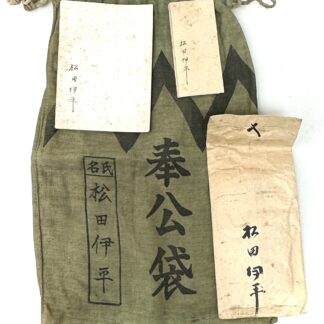 松田伊平
松田伊平
奉公袋
氏名
松田伊平
松田伊平